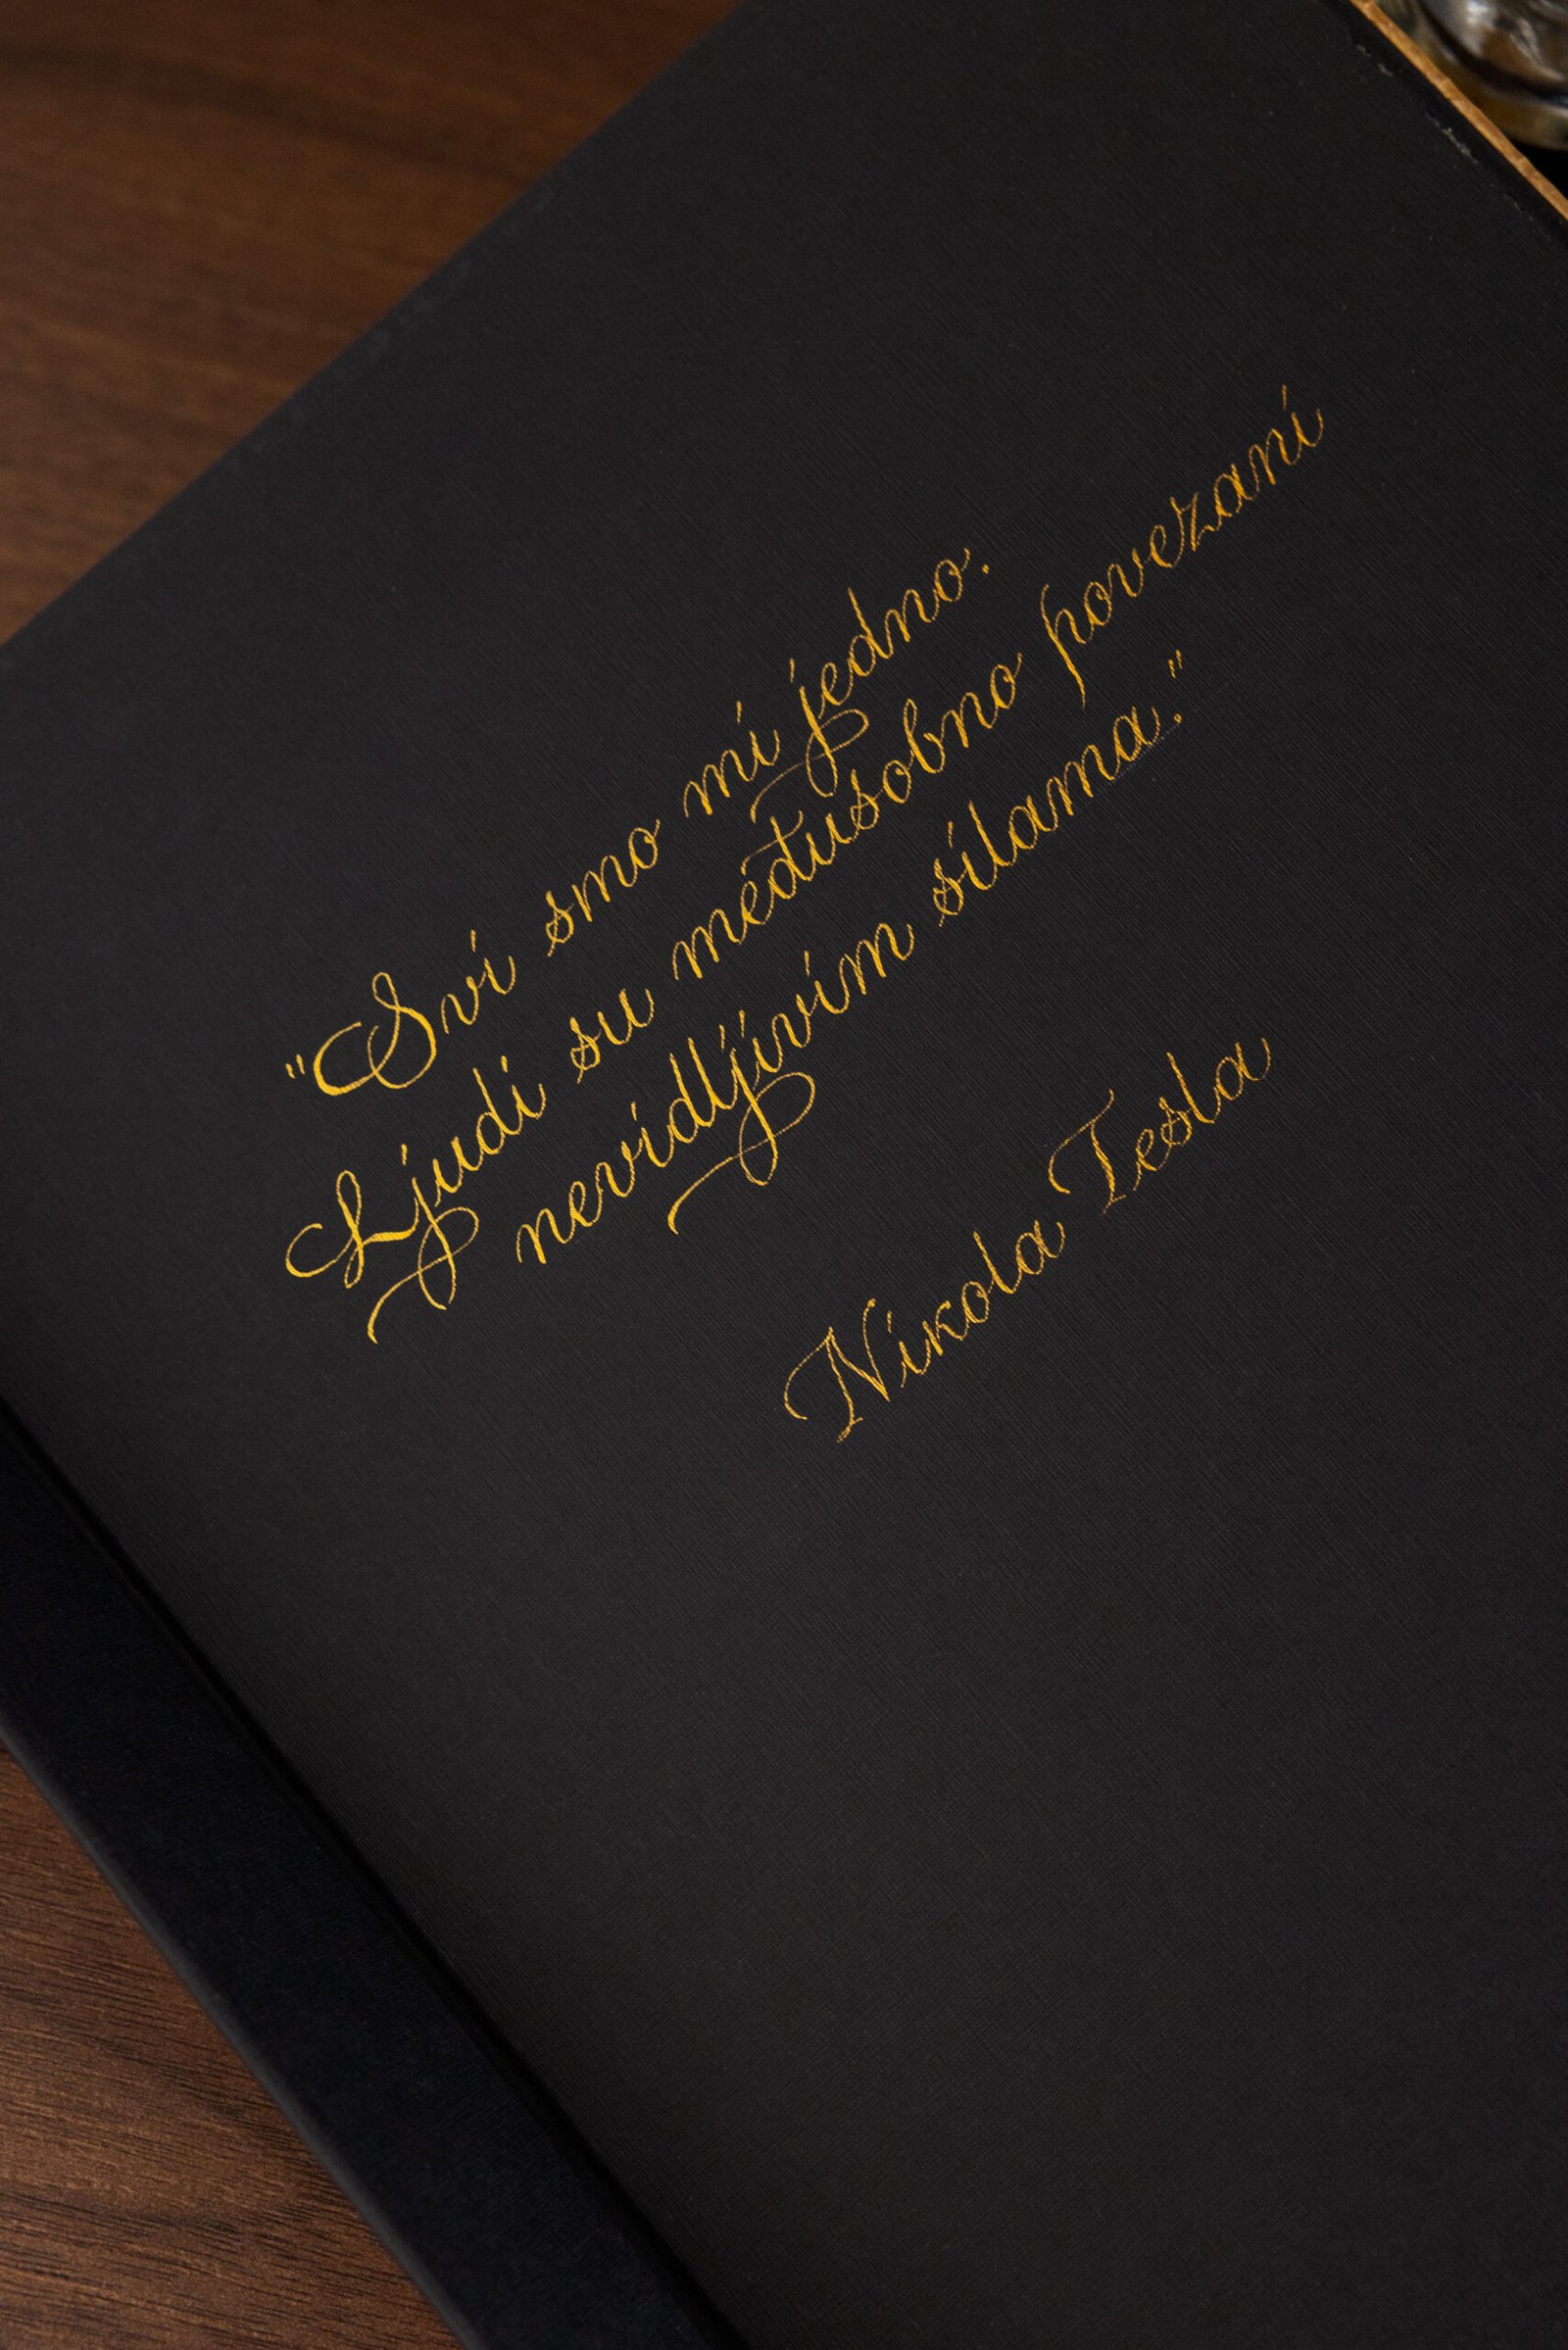 "Svi smo mi jedno.
Ljudi su međusobno povezani
nevidljivim silama."
Nikola Tesla